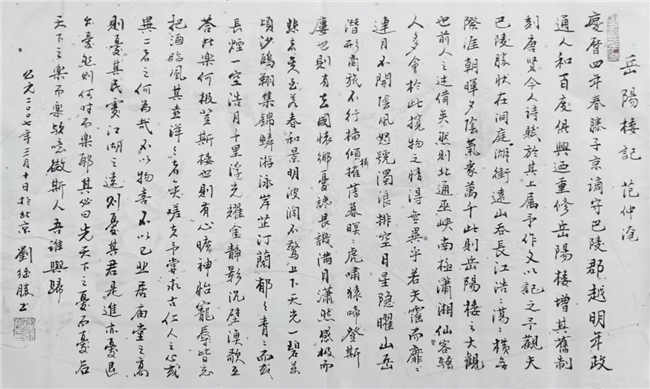 岳陽樓記 范仲淹
慶曆四年春滕子京謫守巴陵郡越明年政
通人和百廢俱興迺重修岳陽樓增其舊制
刻唐賢今人詩賦於其上屬予作文以記之予觀夫
巴陵勝狀在洞庭湖銜遠山吞長江浩々湯々橫無
際涯朝暉夕陰氣象萬千此則岳陽樓之大觀
也前人之述備矣然則北通巫峽南極瀟湘仙客騷
人多會於此攬物之情得無異乎若夫霪雨霏々
連月不開陰風怒號濁浪排空日星隱曜山岳
潛形商旅不行檣傾楫摧薄暮暝々虎嘯猿啼登斯
樓也則有去國懷鄉憂讒畏譏滿目瀟然感極而
悲者矣至若春和景明波瀾不驚上下天光一碧萬
頃沙鷗翔集錦鱗游泳岸芷汀蘭郁々青々而或
長煙一空浩月千里浮光耀金静影沉壁漁歌互
答此樂何極登斯樓也則有心曠神怡寵辱皆忘
把酒臨風其喜洋々者矣嗟夫予嘗求古仁人之心或
異二者之何為哉不以物喜不以己悲居廟堂之高
則憂其民處江湖之遠則憂其君是進亦憂退
亦憂然則何時而樂耶其必曰先天下之憂而憂后
天下之樂而樂歟噫微斯人吾誰與歸
公元二〇〇七年三月十日於北京 劉 勝书